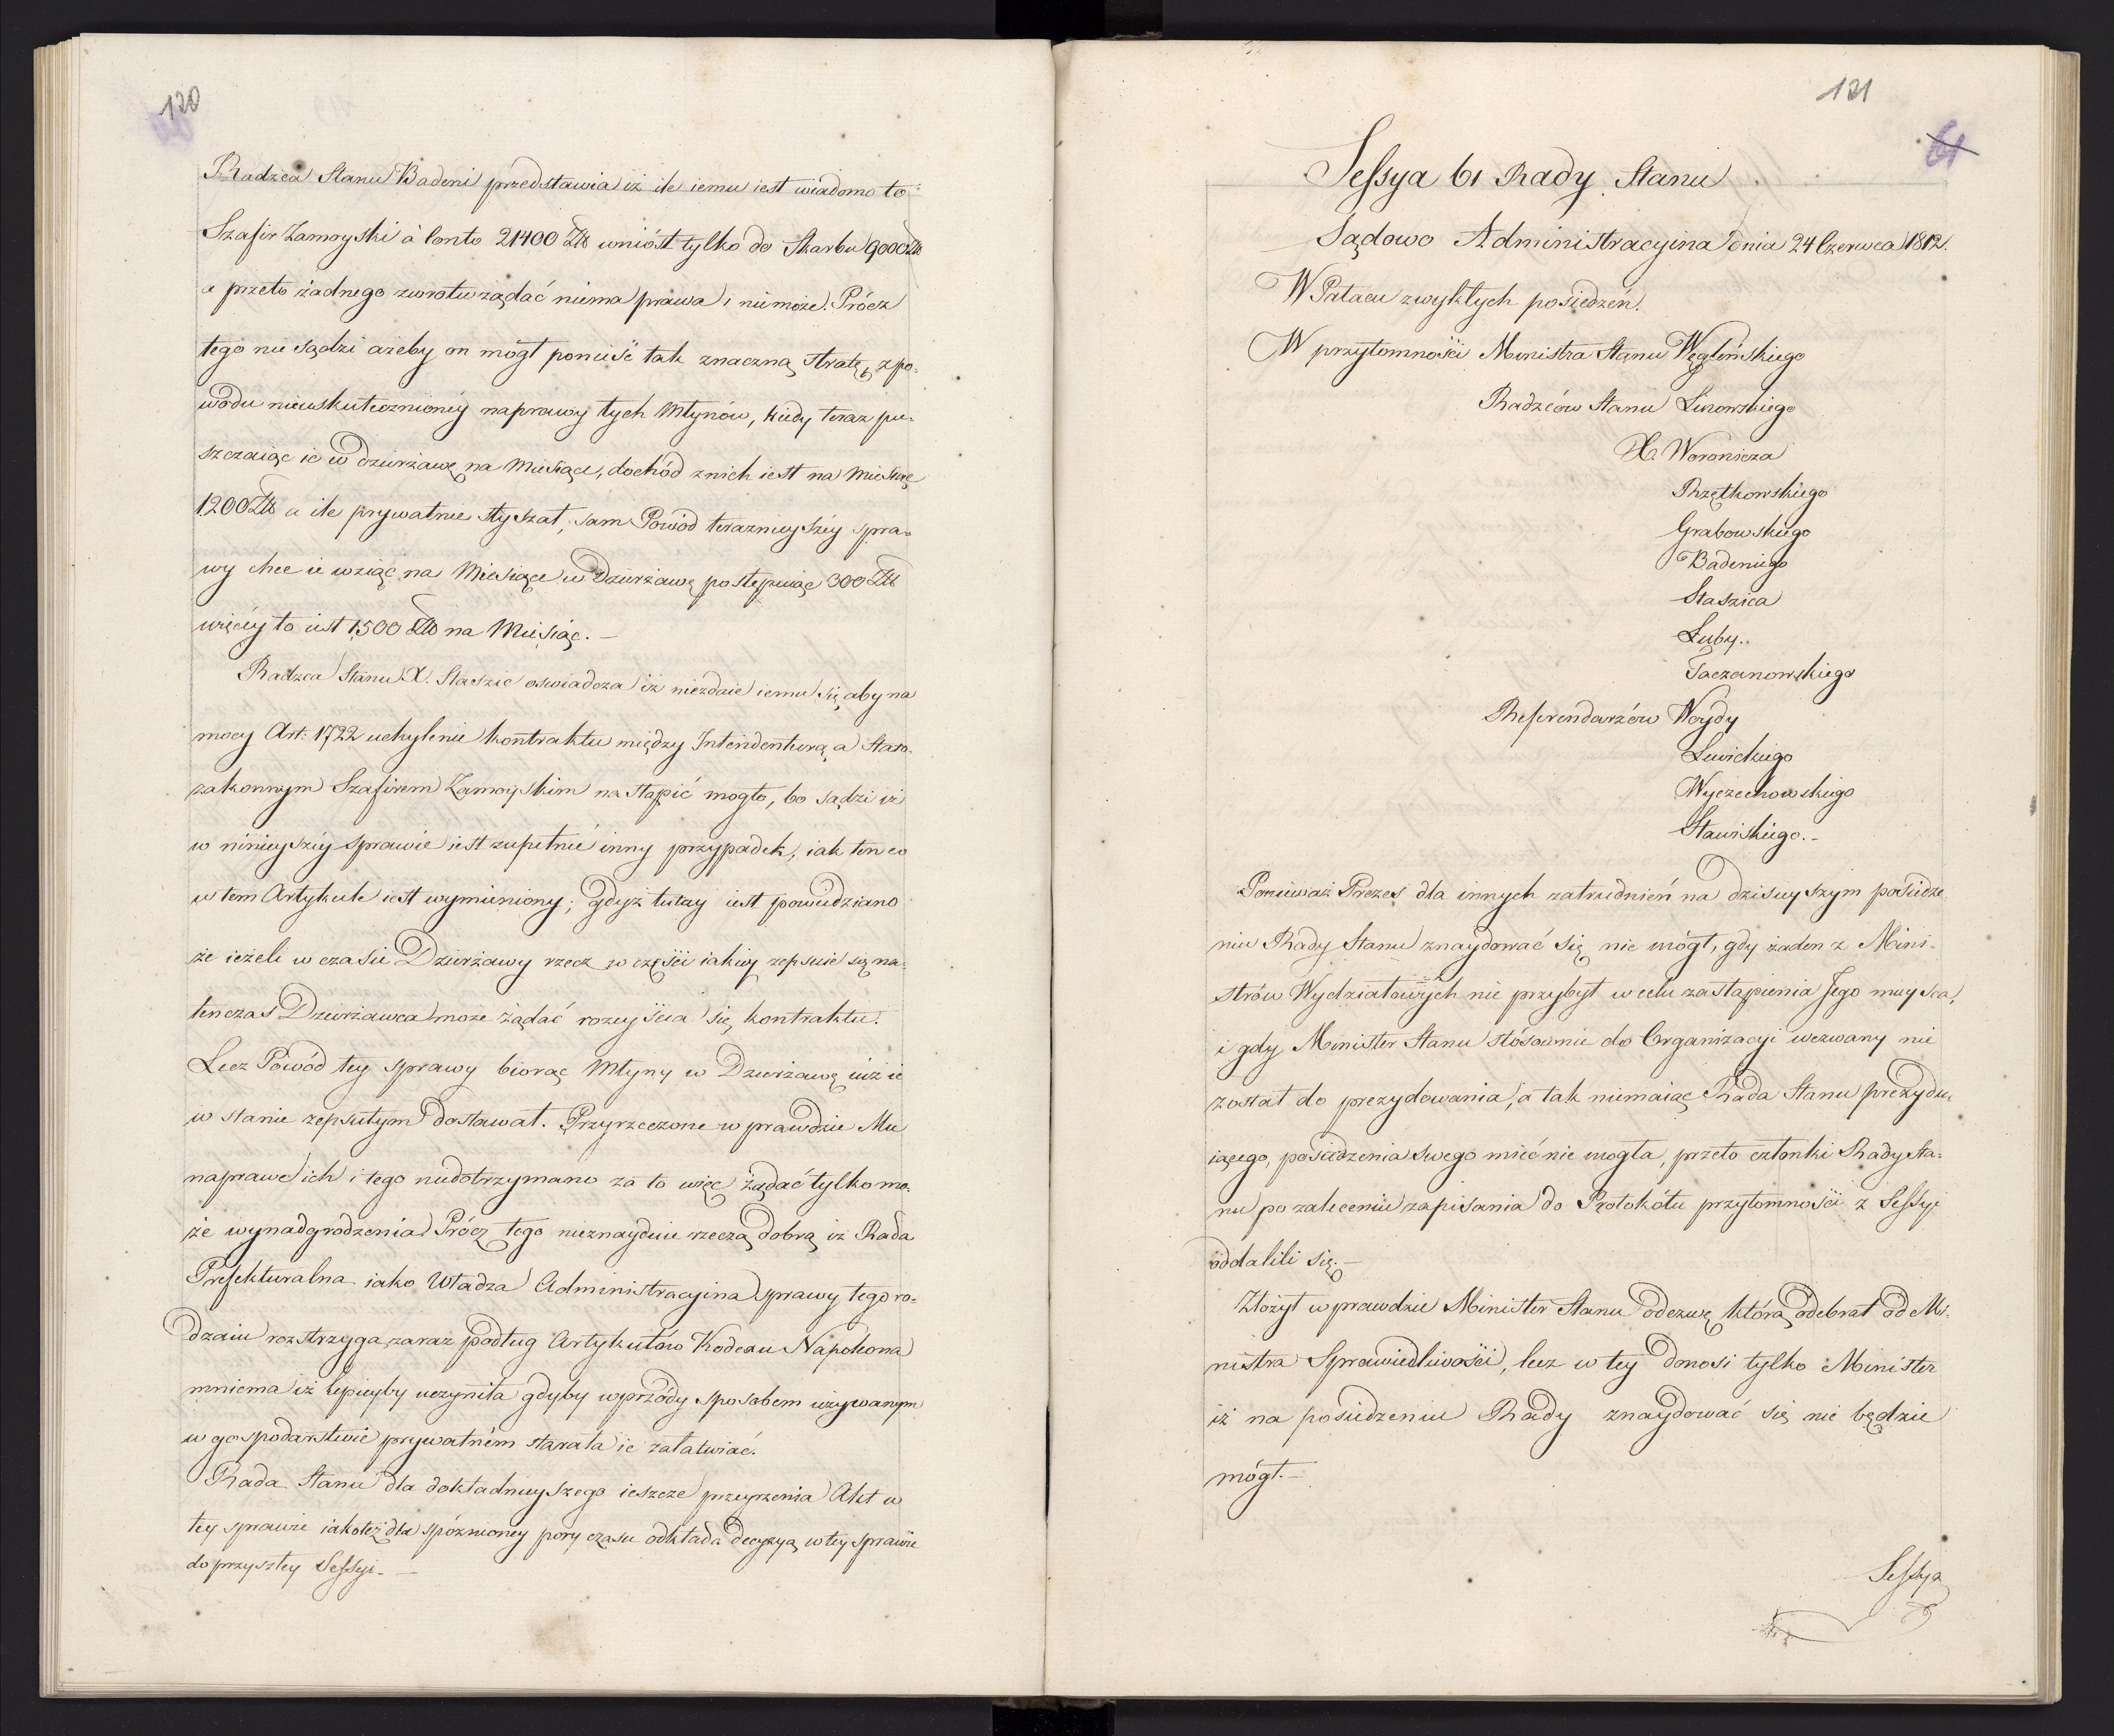 120
Radzca Stanu Badeni przedstawia iż ile iemu iest wiadomo to
Szafir Zamoyski à Conto 21400 Złł wniósł tylko do Skarbu 9000 Złł
a przeto żadnego zwrotu żądać niema prawa i nimoże. Prócz
tego nie sądzi ażeby on mógł ponieść tak znaczną stratę, z po-
wodu nieuskutecznioney naprawy tych Młynów, kiedy teraz pu-
szczaiąc ie w dzierżawę na Miesiące, dochód z nich iest na Miesiąc
1200 Złł a ile prywatnie słyszał, sam Powód teraznieyszéy spra-
wy chce ie wziąć na Miesiące w Dzierżawę postępuiąc 300 Złł
więcéy to iest 1,500 Złł na Miesiąc. -
Radzca Stanu X. Staszic oswiadcza iż niezdaie iemu się aby na
mocy Art: 1722 uchylenie kontraktu między Intendenturą a Staro-
zakonnym Szafirem Zamoyskim nastąpić mogło, bo sądzi iż
w ninieyszéy sprawie iest zupełnie inny przypadek, iak ten co
w tem Artykule iest wymieniony; gdyż tutay iest powiedziano
że ieżeli w czasie Dzierżawy rzecz w części iakiey zepsuie się na-
tenczas Dzierżawca może żądać rozeyścia się kontraktu.
Lecz Powód tey sprawy biorąc Młyny w Dzierżawę iuż ie
w stanie zepsutym dostawał. Przyrzeczone w prawdzie Mu
naprawe ich i tego niedotrzymano za to więc żądać tylko mo-
że wynadgrodzenia. Prócz tego nieznayduie rzeczą dobrą iż Rada
Prefekturalna iako Władza Administracyina sprawy tego ro-
dzaiu rozstrzyga zaraz podług Artykułów Kodexu Napoleona
mniema iż lepieyby uczyniła gdyby wprzódy sposobem używanym
w gospodarstwie prywatném starała ie załatwiać.
Rada Stanu dla dokładnieyszego ieszcze przeyrzenia Akt w
tey sprawie iakoteż dla spóźnioney pory czasu odkłada decyzyą w tey sprawie
do przyszłey Sessyi. -
121
61
Sessya 61 Rady Stanu
Sądowo Administracyina dnia 24 Czerwca 1812.
W Pałacu zwykłych posiedzeń.
W przytomności Ministra Stanu Węgleńskiego
Radzców Stanu Linowskiego
X. Woronicza
Rzętkowskiego
Grabowskiego
Badeniego
Staszica
Łuby.
Taczanowskiego
Referendarzów Woydy
Lewickiego
Wyczechowskiego
Stawiskiego. -
Ponieważ Prezes dla innych zatrudnień na dzisieyszym posiedze-
niu Rady Stanu znaydować się nie mógł, gdy żaden z Mini-
strów Wydziałowych nie przybył w celu zastąpienia Jego mieysca,
i gdy Minister Stanu stósownie do Organizacyi wezwany nie
został do prezydowania, a tak niemaiąc Rada Stanu prezydu-
iącego, posiedzenia swego mieć nie mogła, przeto członki Rady Sta-
nu po zaleceniu zapisania do Protokółu przytomności z Sessyi
oddalili się. -
Złożył wprawdzie Minister Stanu odezwę którą odebrał od Mi-
nistra Sprawiedliwości, lecz w tey donosi tylko Minister
iż na posiedzeniu Rady znaydować się nie będzie
mógł. -
Sessya